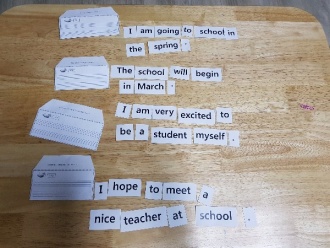 I am going to school in
the spring .
The school will begin
in March .
I am very excited to
be a student myself .
I hope to meet a
nice teacher at school .